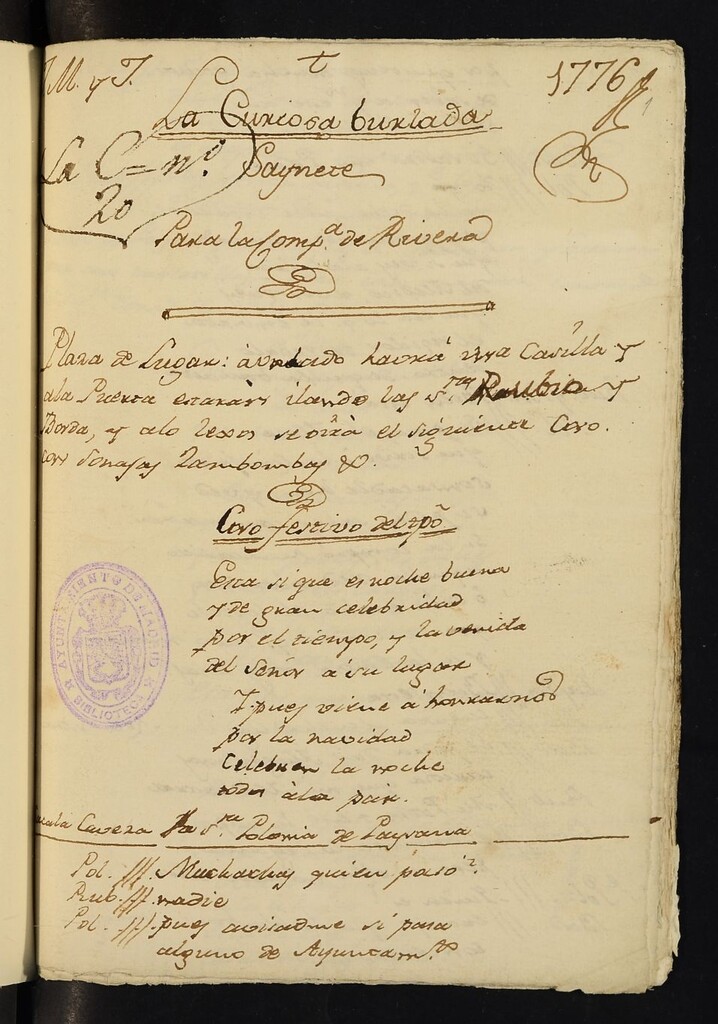 J. M. y J. t 1776
La Curiosa burlada
La C= nº. 20
Saynete
Para la Comp.ª de Rivera
Plaza de Lugar: à un lado havrá una Casilla y
ala Puerta estarán ilando las S.ras Rubio y
Borda, y alo lexos se oirà el siguiente Coro.
con Sonajas Zambombas &.
Coro festivo del tpõ
Esta si que es noche buena
y de gran celebridad
por el tiempo, y la venida
del Señor à su lugar
Y pues viene á honrarnos
por la navidad
Celebren la noche
todos àla par.
saca la Caveza la S.ra Polonia de Paysana
Pol. Muchachas quien pasó?
Rub. nadie
Pol. pues avisadme si pasa
alguno de Ayuntam.to
AYUNTAMIENTO DE MADRID
BIBLIOTECA